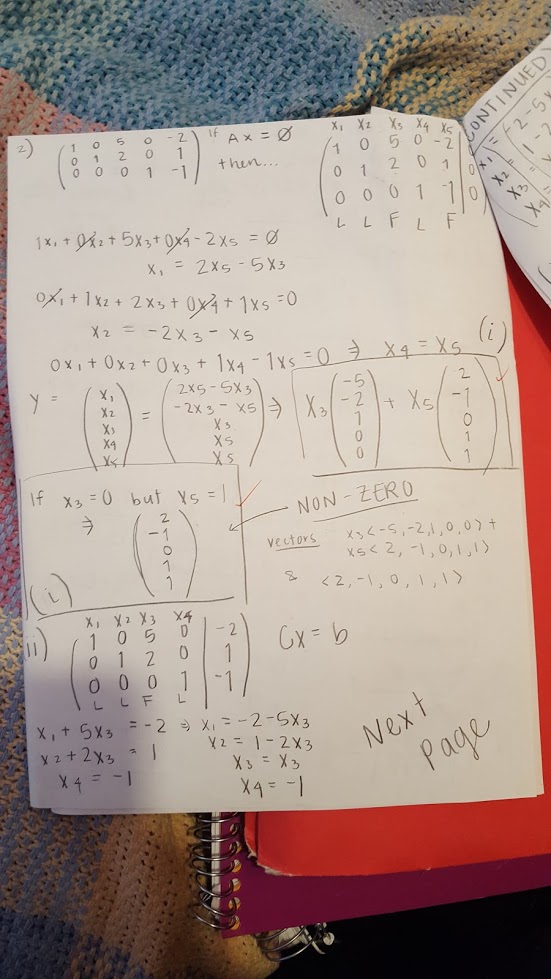 2) ( 1 0 5 0 -2 ) If Ax = ∅
( 0 1 2 0 1 )
( 0 0 0 1 -1 ) then...
x1 x2 x3 x4 x5
1 0 5 0 -2 |
0 1 2 0 1 | 0
0 0 0 1 -1 | 0
L L F L F
1x1 + 0x2 + 5x3 + 0x4 - 2x5 = ∅
x1 = 2x5 - 5x3
0x1 + 1x2 + 2x3 + 0x4 + 1x5 = 0
x2 = -2x3 - x5
(i)
0x1 + 0x2 + 0x3 + 1x4 - 1x5 = 0 ⇒ x4 = x5
Y = ( x1 x2 x3 x4 x5 ) = ( 2x5-5x3 -2x3-x5 x3 x5 x5 ) ⇒ x3 ( -5 -2 1 0 0 ) + x5 ( 2 -1 0 1 1 )
If x3 = 0 but x5 = 1
⇒ ( 2 -1 0 1 1 )
(i)
NON-ZERO
vectors x3<-5,-2,1,0,0> +
x5<2,-1,0,1,1>
& <2,-1,0,1,1>
ii) x1 x2 x3 x4
1 0 5 0 | -2
0 1 2 0 | 1
0 0 0 1 | -1
L L F L
Cx = b
x1 + 5x3 = -2 ⇒ x1 = -2-5x3
x2 + 2x3 = 1 x2 = 1-2x3
x4 = -1 x3 = x3
x4 = -1
Next
page
CONTINUED
x1 = -2-5x
x2 = 1-2
x3 = x
x4 =